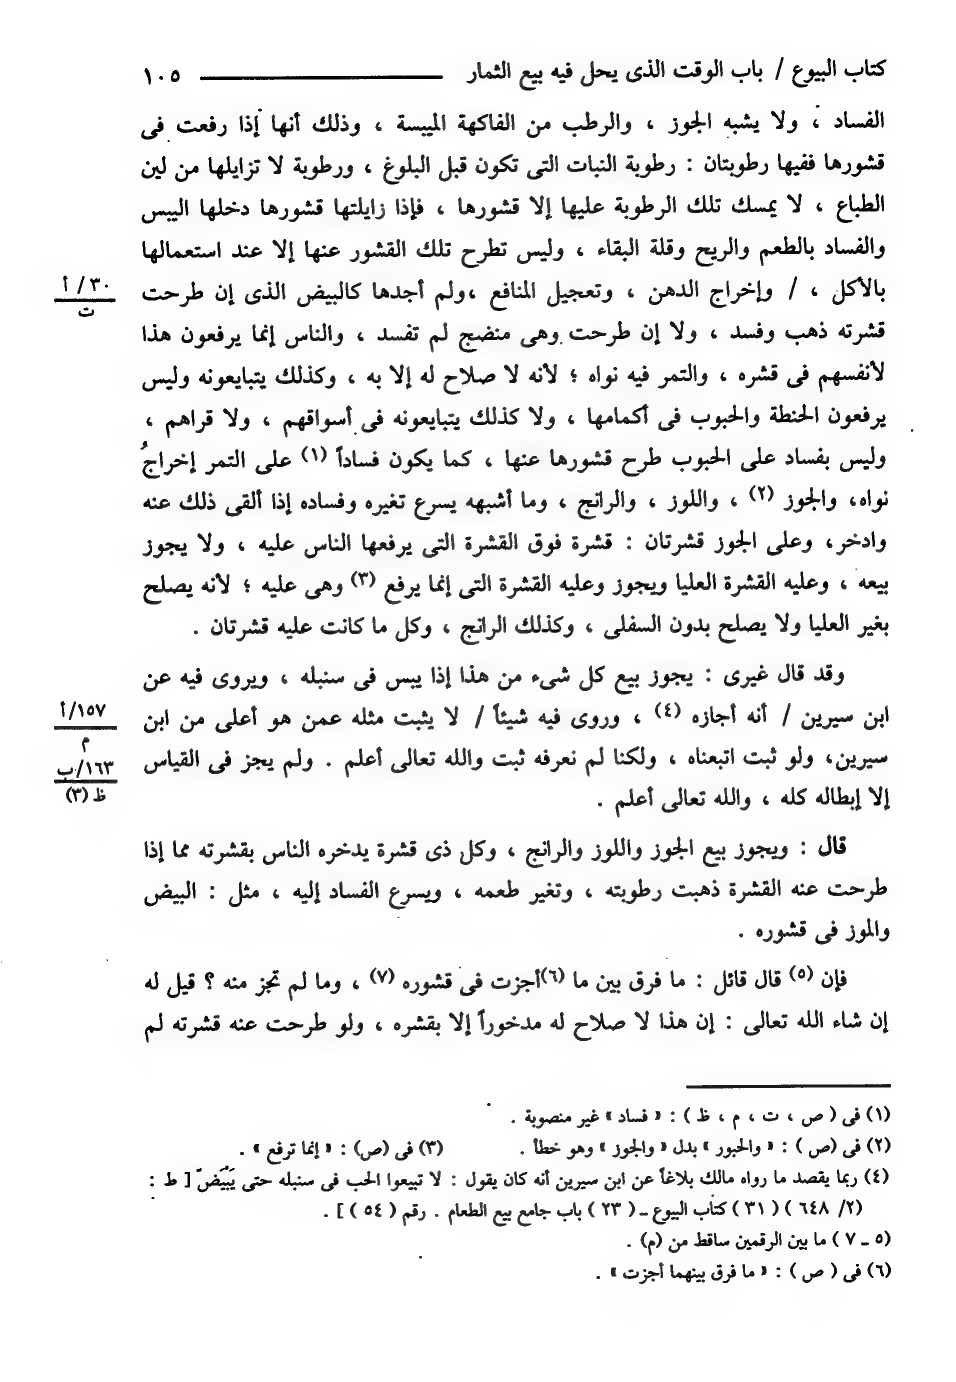 كتاب البيوع / باب الوقت الذى يحل فيه بيع الثمار ــــــــــ ١٠٥
الفساد ، ولا يشبه الجوز ، والرطب من الفاكهة المييسة ، وذلك أنها إذا رفعت فى
قشورها ففيها رطوبتان : رطوبة النبات التى تكون قبل البلوغ ، ورطوبة لا تزايلها من لين
الطباع ، لا يمسك تلك الرطوبة عليها إلا قشورها ، فإذا زايلتها قشورها دخلها اليبس
والفساد بالطعم والريح وقلة البقاء ، وليس تطرح تلك القشور عنها إلا عند استعمالها
بالأكل ، / وإخراج الدهن ، وتعجيل المنافع ،ولم أجدها كالبيض الذى إن طرحت
٣٠ / أ
ت
قشرته ذهب وفسد ، ولا إن طرحت وهى منضج لم تفسد ، والناس إنما يرفعون هذا
لأنفسهم فى قشره ، والتمر فيه نواه ؛ لأنه لا صلاح له إلا به ، وكذلك يتبايعونه وليس
يرفعون الحنطة والحبوب فى أكمامها ، ولا كذلك يتبايعونه فى أسواقهم ، ولا قراهم ،
وليس بفساد على الحبوب طرح قشورها عنها ، كما يكون فساداً (١) على التمر إخراجُ
نواه، والجوز (٢) ، واللوز ، والرانج ، وما أشبهه يسرع تغيره وفساده إذا ألقى ذلك عنه
وادخر، وعلى الجوز قشرتان : قشرة فوق القشرة التى يرفعها الناس عليه ، ولا يجوز
بيعه ، وعليه القشرة العليا ويجوز وعليه القشرة التى إنما يرفع (٣) وهى عليه ؛ لأنه يصلح
بغير العليا ولا يصلح بدون السفلى ، وكذلك الرانج ، وكل ما كانت عليه قشرتان .
وقد قال غيرى : يجوز بيع كل شىء من هذا إذا يبس فى سنبله ، ويروى فيه عن
ابن سيرين / أنه أجازه (٤) ، وروى فيه شيئاً / لا يثبت مثله عمن هو أعلى من ابن
١٥٧/أ
م
سيرين، ولو ثبت اتبعناه ، ولكنا لم نعرفه ثبت والله تعالى أعلم . ولم يجز فى القياس
١٦٣/ب
ظ (٣)
إلا إبطاله كله ، والله تعالى أعلم .
قال : ويجوز بيع الجوز واللوز والرانج ، وكل ذى قشرة يدخره الناس بقشرته مما إذا
طرحت عنه القشرة ذهبت رطوبته ، وتغير طعمه ، ويسرع الفساد إليه ، مثل : البيض
والموز فى قشوره .
فإن (٥) قال قائل : ما فرق بين ما (٦)أجزت فى قشوره (٧) ، وما لم تجز منه ؟ قيل له
إن شاء الله تعالى : إن هذا لا صلاح له مدخوراً إلا بقشره ، ولو طرحت عنه قشرته لم
(١) فى ( ص ، ت ، م ، ظ ) : « فساد » غير منصوبة .
(٢) فى (ص ) : « والحبور » بدل « والجوز » وهو خطأ . (٣) فى (ص) : « إنما ترفع » .
(٤) ربما يقصد ما رواه مالك بلاغاً عن ابن سيرين أنه كان يقول : لا تبيعوا الحب فى سنبله حتى يَبْيَضّ [ ط :
(٢/ ٦٤٨ ) (٣١ ) كتاب البيوع ـ ( ٢٣ ) باب جامع بيع الطعام . رقم ( ٥٤ ) ] .
(٥ ـ ٧ ) ما بين الرقمين ساقط من (م) .
(٦) فى ( ص ) : « ما فرق بينهما أجزت » .